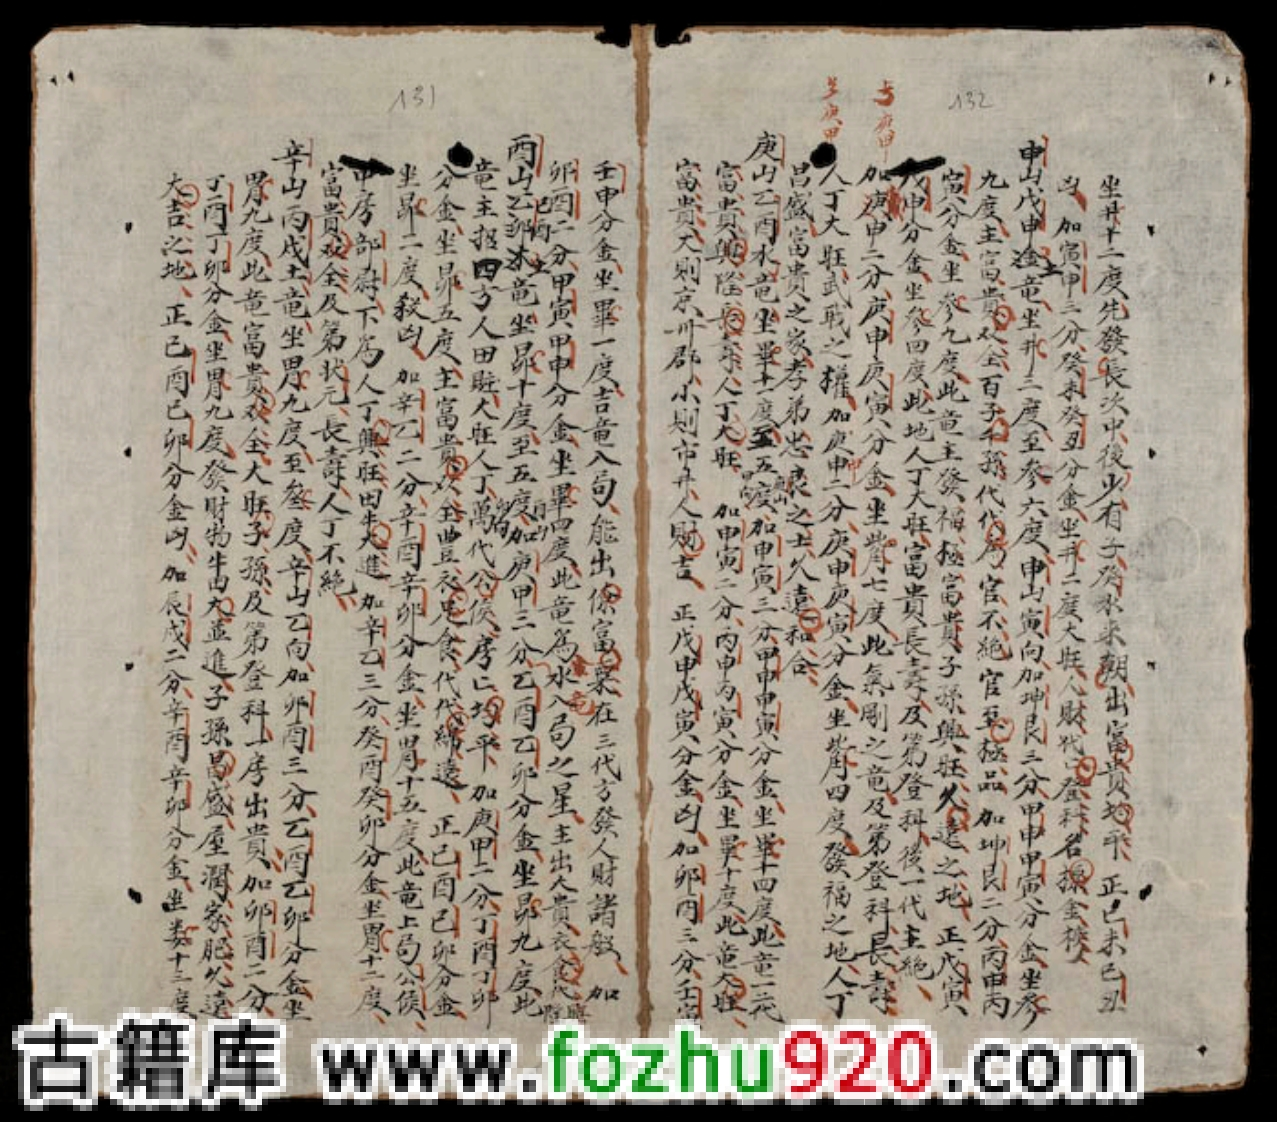 132
坐井十二度先發長次中後少有子癸水來朝出富貴均平 正己未己丑
凶 加寅申三分癸未癸丑分金坐井二度大旺人財代登科名操金榜
申山戊申土竜坐井三度至參六度申山寅向加坤艮三分甲申甲寅分金坐參
九度主富貴双全百子千孫代代為官不絕官至極品 加坤艮二分丙申丙
寅分金坐參九度此竜主發福極富貴子孫興旺久遠之地 正戊寅
戊申分金坐參四度此地人丁大旺富貴長壽及第登科後一代主絕
加庚申二分庚申庚寅分金坐觜七度此氣剛之竜及第登科長壽
人丁大旺武職之權加庚申二分庚申庚寅分金坐觜四度發福之地人丁
昌盛富貴之家孝弟忠良之士久遠和合
庚山乙酉水竜坐畢十度至五度加申寅三分甲申甲寅分金坐畢十四度此竜一代
富貴興隆長壽人丁大旺 加申寅二分丙申丙寅分金坐畢十度此竜大旺
富貴大則京州郡小則市井人財吉 正戊申戊寅分金凶加卯酉三分壬寅
131
壬申分金坐畢一度吉竜入局能出保富榮在三代方發人財諸般 加
卯酉二分甲寅甲申分金坐畢四度此竜為水入局之星主出大貴衣食代
酉山乙卯水竜坐昴十度至五度加庚甲三分乙酉乙卯分金坐昴九度此
竜主招四方人田庄大旺人丁萬代公侯房亡均平 加庚甲二分丁酉丁卯
分金坐昴五度主富貴双全豐衣足食代代綿遠 正己酉己卯分金
坐昴二度殺凶 加辛乙二分辛酉辛卯分金坐胃十五度此竜上局公侯
中房部尉下為人丁興旺田牛大進 加辛乙三分癸酉癸卯分金坐胃十二度
富貴双全及第狀元長壽人丁不絕
辛山丙戌土竜坐胃九度至叁度辛山乙向加卯酉三分乙酉乙卯分金坐
胃九度此竜富貴双全大旺子孫及第登科一房出貴加卯酉二分
丁酉丁卯分金坐胃九度發財物牛馬大益進子孫昌盛屋潤家肥久遠
大吉之地 正己酉己卯分金凶 加辰戌二分辛酉辛卯分金坐婁十三度
古籍库 www.fozhu920.com